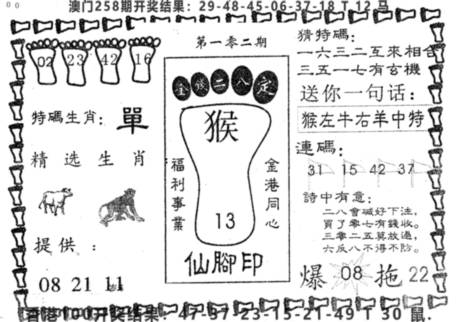 澳门258期开奖结果：29-48-45-06-37-18 T 12 马
02 23 42 16
特碼生肖：單
精选生肖
提供：
08 21 11
第一零二期
金錢二八定
猴
福利事業
金港同心
13
仙腳印
猜特碼：
一六三二互來相合
三五一七有玄機
送你一句话：
猴左牛右羊中特
連碼：
31 15 42 37
詩中有意：
二八會碱好下注，
買了零七有錢收。
三零二五莫放過，
六反八不得不防。
爆 08 拖 22
香港100开奖结果：47-37-23-15-21-49 T 30 鼠.